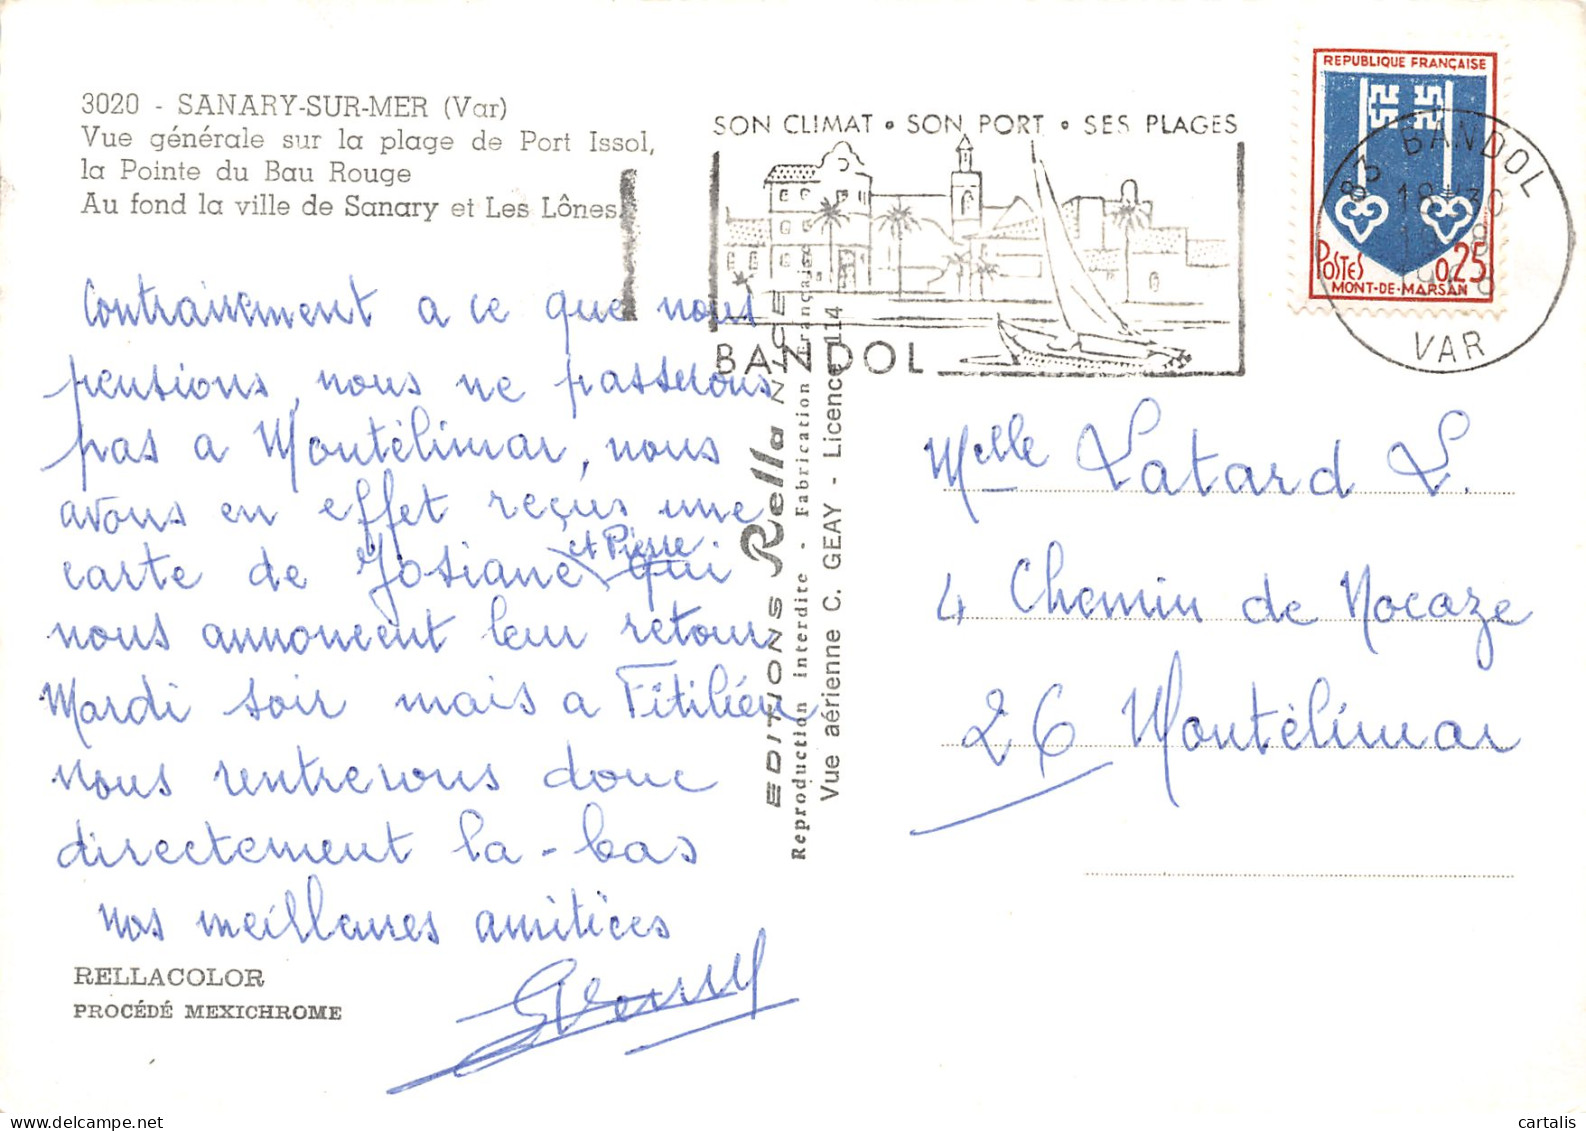 3020 - SANARY-SUR-MER (Var)
Vue générale sur la plage de Port Issol,
la Pointe du Bau Rouge
Au fond la ville de Sanary et Les Lônes.
Contrairement a ce que nous
pensions, nous ne passerons
pas a Montélimar, nous
avons en effet reçus une
carte de Josiane et Pierre qui
nous annoncent leur retour
Mardi soir mais a Fitilieu
Nous rentrerons donc
directement la-bas
nos meilleures amitiées
RELLACOLOR
PROCÉDÉ MEXICHROME
EDITIONS Rella NICE
Reproduction interdite - Fabrication Française
Vue aérienne C. GEAY - Licence 114
SON CLIMAT • SON PORT • SES PLAGES
BANDOL
REPUBLIQUE FRANÇAISE
POSTES 0,25
MONT-DE-MARSAN
83 BANDOL
18 H 30
VAR
Melle Latard L.
4 Chemin de Nocaze
26 Montélimar
cartalis
delcampe.net